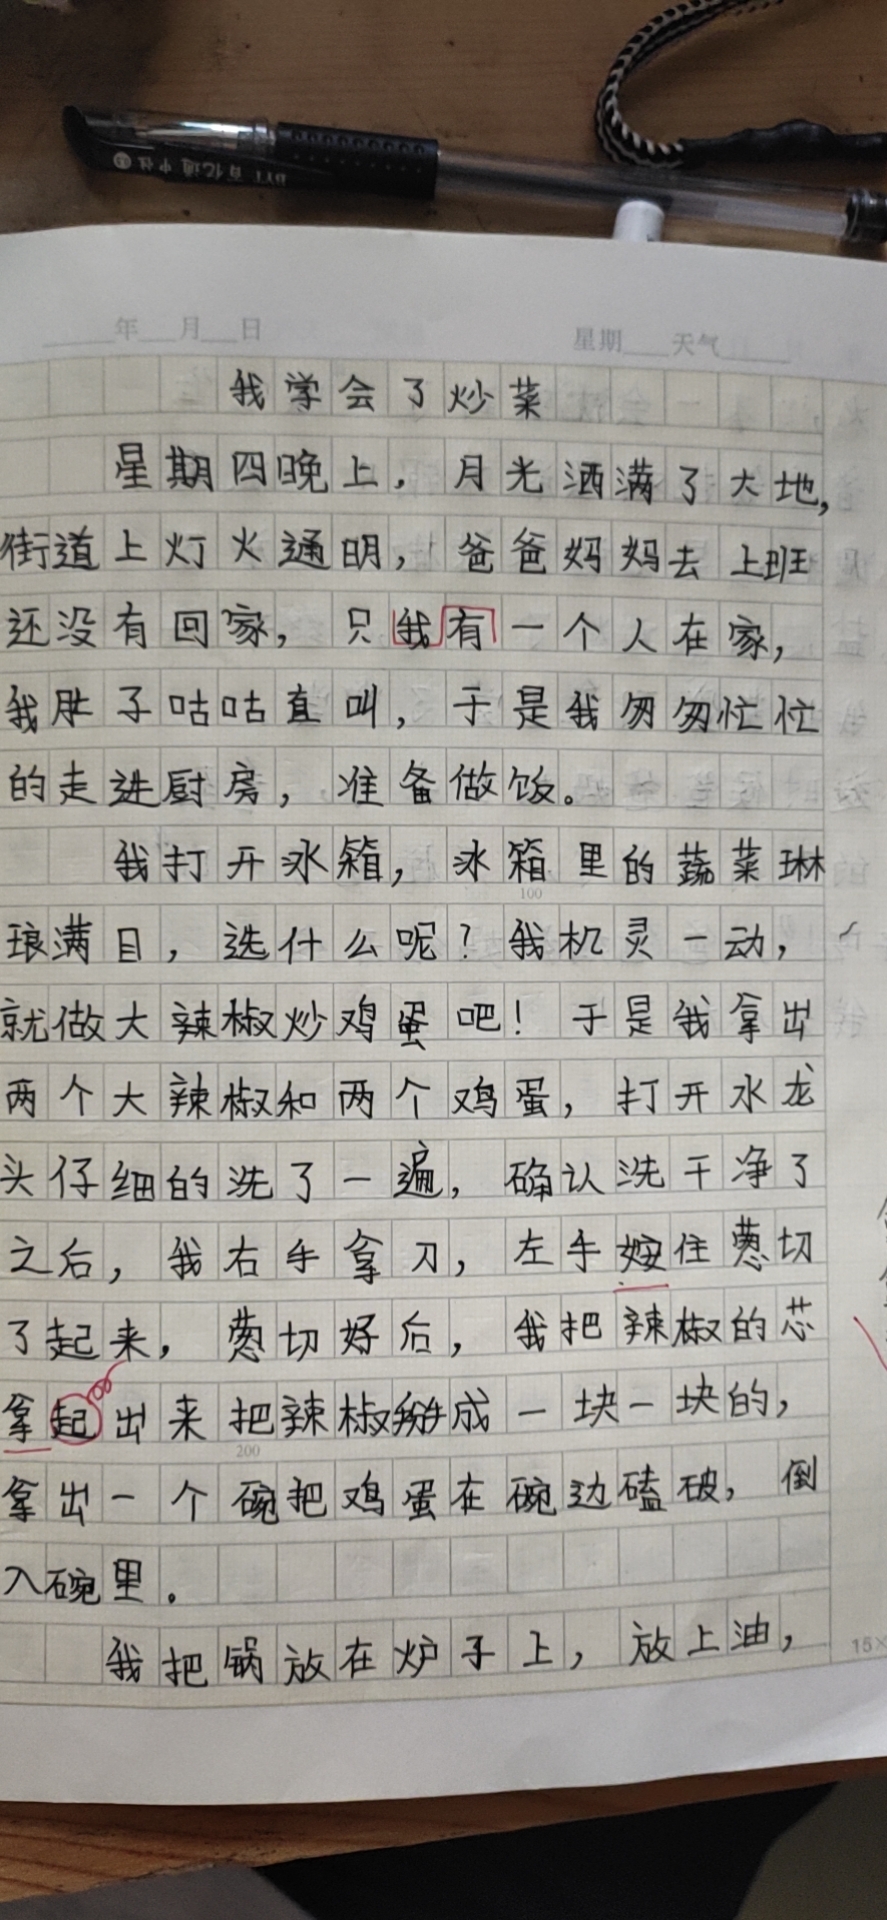 BYT 百亿通 中性
年 月 日 星期 天气
我学会了炒菜
星期四晚上，月光洒满了大地，
街道上灯火通明，爸爸妈妈去上班
还没有回家，只我有一个人在家，
我肚子咕咕直叫，于是我匆匆忙忙
的走进厨房，准备做饭。
我打开冰箱，冰箱里的蔬菜琳
100
琅满目，选什么呢？我机灵一动，
就做大辣椒炒鸡蛋吧！于是我拿出
两个大辣椒和两个鸡蛋，打开水龙
头仔细的洗了一遍，确认洗干净了
之后，我右手拿刀，左手按住葱切
了起来，葱切好后，我把辣椒的芯
拿起出来把辣椒掰成一块一块的，
200
拿出一个碗把鸡蛋在碗边磕破，倒
入碗里。
我把锅放在炉子上，放上油，
15×